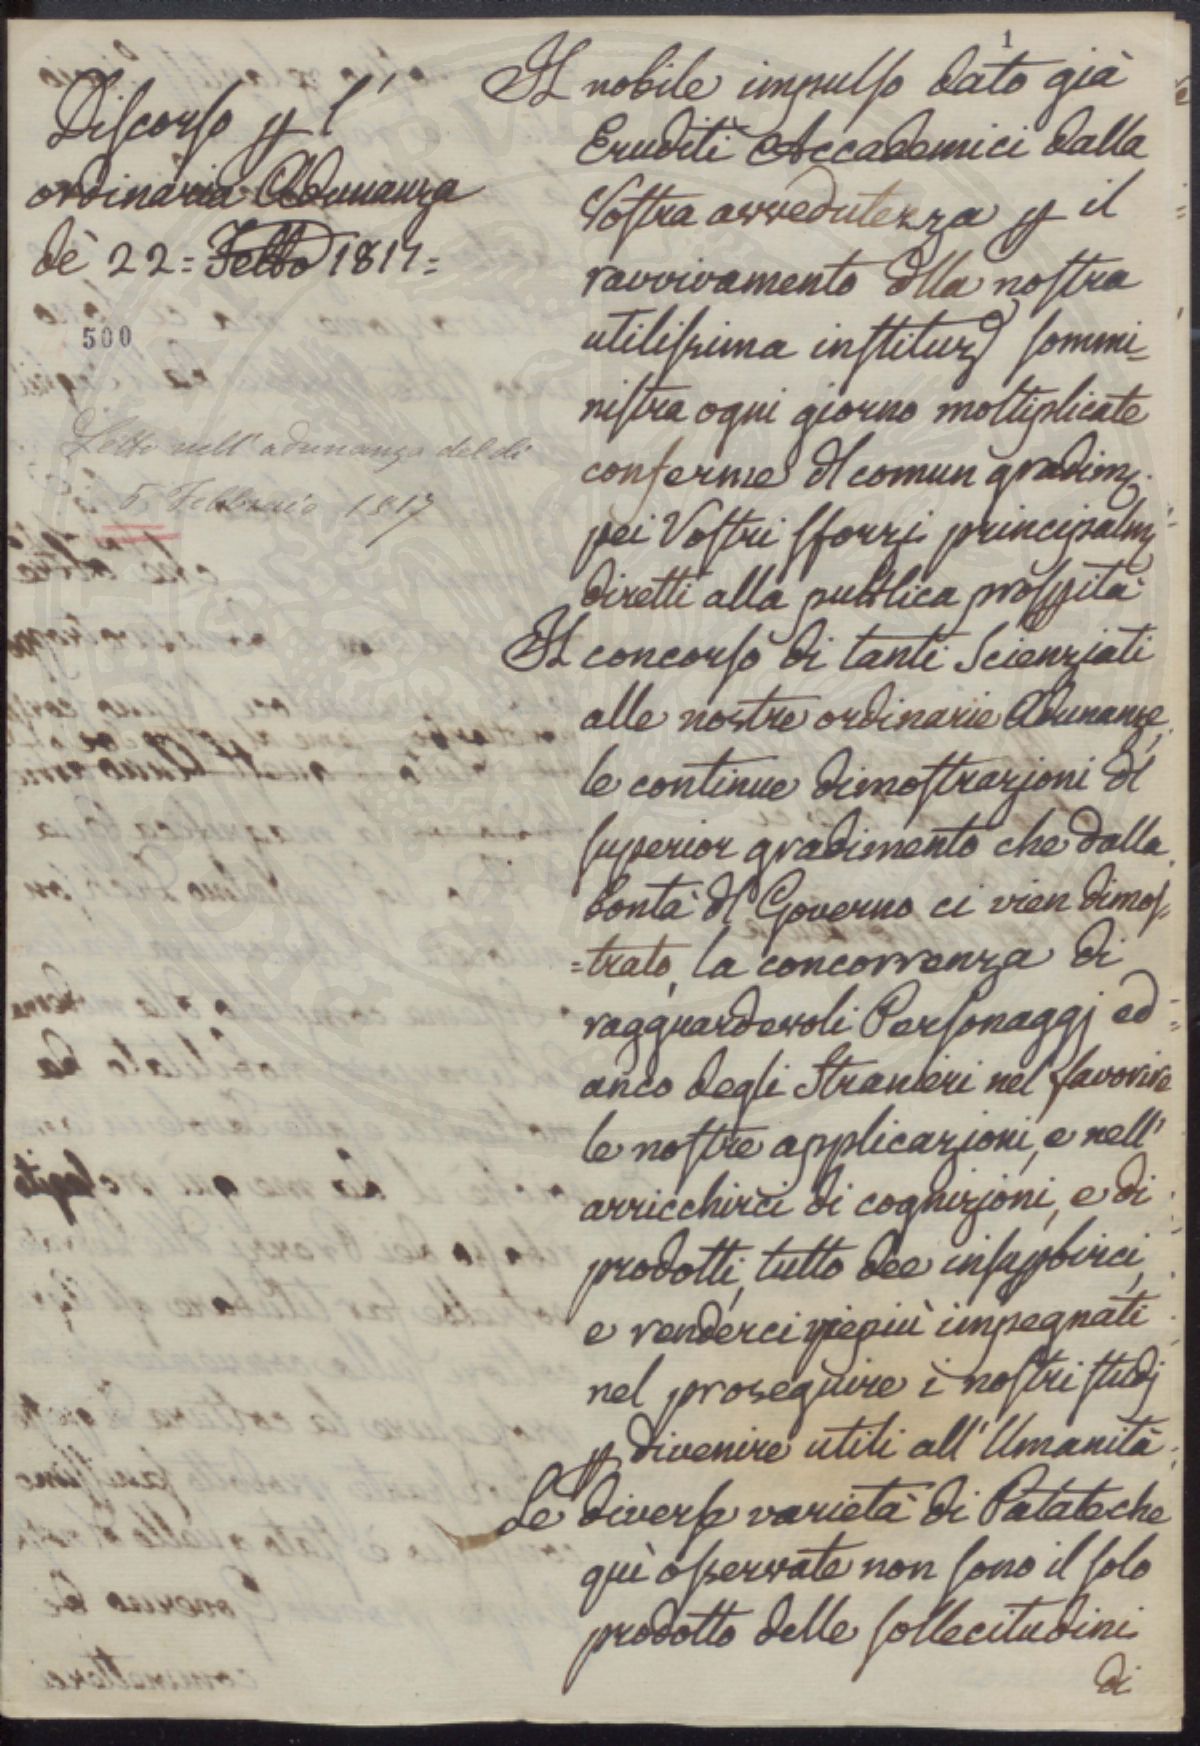 1
Discorso p l'
ordinaria Adunanza
dè 22 = Febbo 1817 =
500
Letto nell' adunanza del dì
5 Febbraio 1817
Il nobile impulso dato già
Eruditi Accademici dalla
Vostra avvedutezza p il
ravvivamento dlla nostra
utilissima instituz sommi=
nistra ogni giorno moltiplicate
conferme dl comun gradim
pei Vostri sforzi principalm
diretti alla pubblica prospità
Il concorso di tanti Scienziati
alle nostre ordinarie Adunanze,
le continue dimostrazioni di
superior gradimento che dalla
bontà dl Governo ci vien dimos=
=trato, la concorrenza di
ragguardevoli Personaggj ed
anco degli Stranieri nel favorire
le nostre applicazioni, e nell'
arricchirci di cognizioni, e di
prodotti, tutto dee insuperbirci,
e renderci piepiù impegnati
nel proseguire i nostri studj
p divenire utili all' Umanità
Le diverse varietà di Patate che
quì osservate non sono il solo
prodotto delle sollecitudini
di